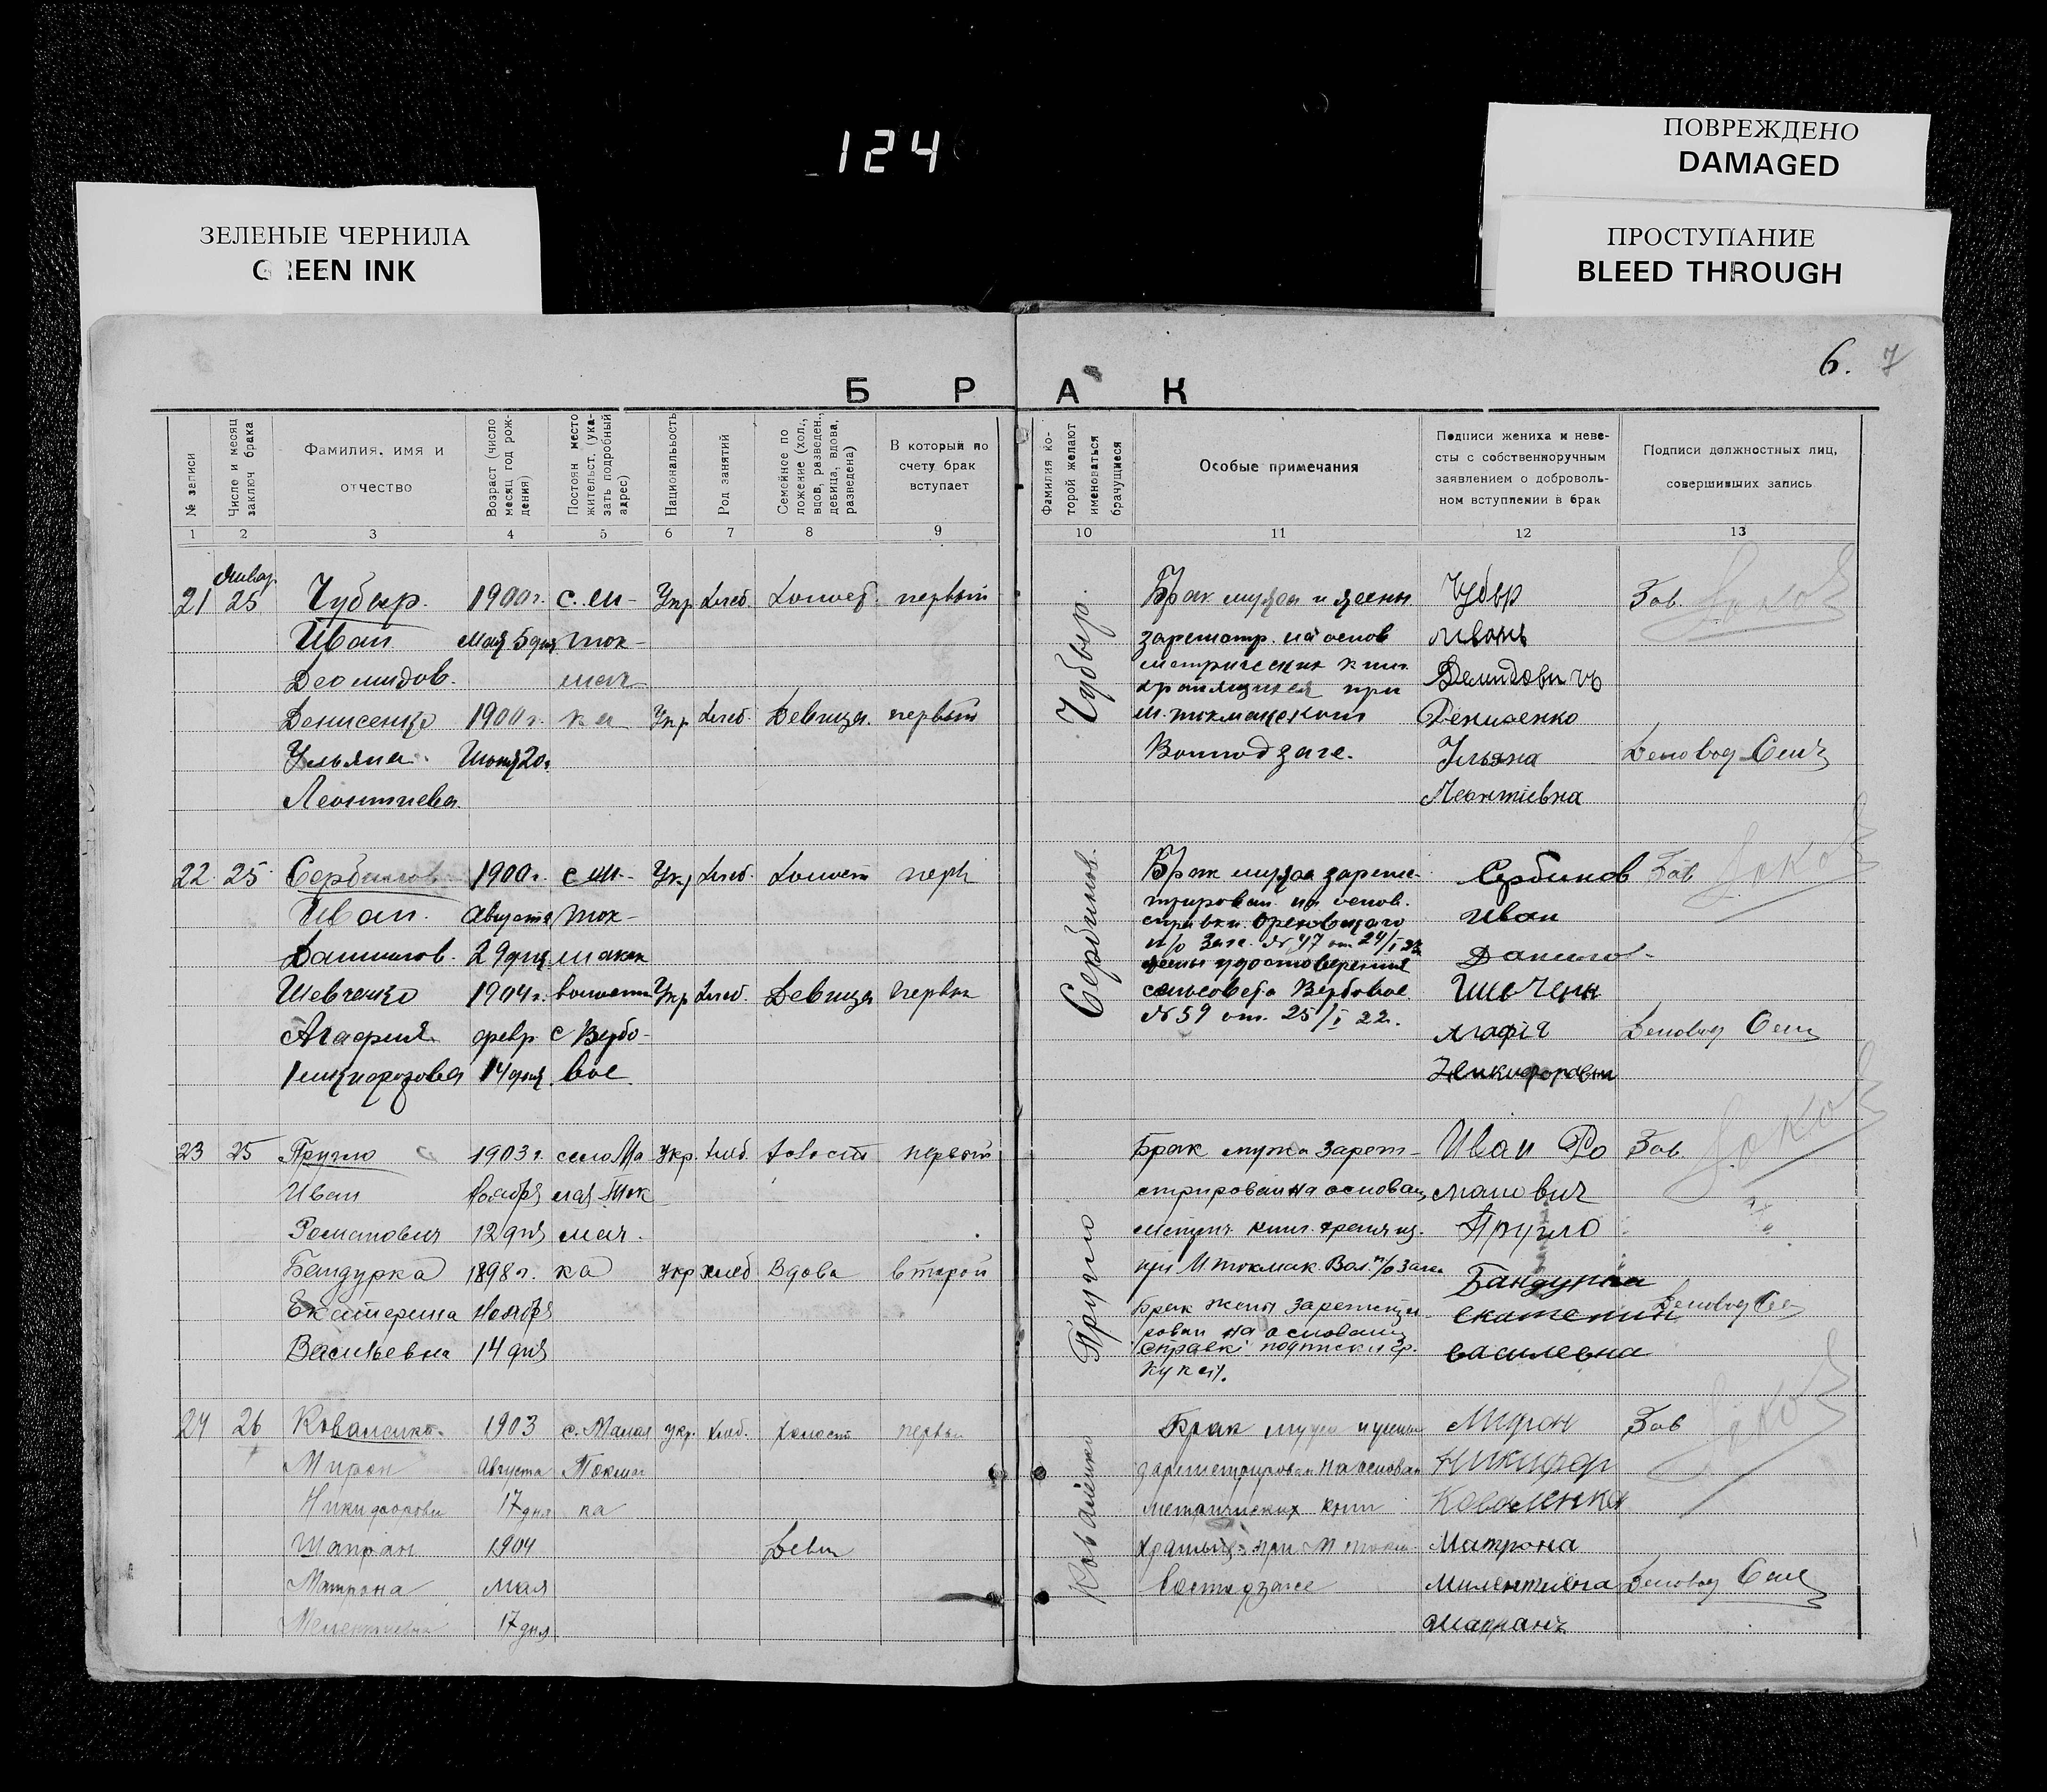 124
ПОВРЕЖДЕНО
DAMAGED
ЗЕЛЕНЫЕ ЧЕРНИЛА
GREEN INK
ПРОСТУПАНИЕ
BLEED THROUGH
6. 7
БРАК
№ записи
Число и месяц заключ брака
Фамилия, имя и отчество
Возраст (число месяц год рождения)
Постоян место жительст. (указать подробный адрес)
Национальность
Род занятий
Семейное положение (хол., вдов, разведен., девица, вдова, разведена)
В который по счету брак вступает
Фамилия которой желают именоваться брачущиеся
Особые примечания
Подписи жениха и невесты с собственноручным заявлением о добровольном вступлении в брак
Подписи должностных лиц, совершивших запись
1 2 3 4 5 6 7 8 9 10 11 12 13
21 Январ. 25 Чубыр. 1900г. с. М- Укр Хлеб. Холост. первый
Иван Мая 5 дня ток-
Деомидов. мач
Денисенко 1900г. ка Укр Хлеб. Девица. первый
Ульяна Июня 20.
Леонтиева
Чубыр.
Брак мужа и жены
зарегистр. на основ
метрических книг
хранящихся при
М. токмацком
Волподзагс.
Чубыр
Иванъ
Демидовичъ
Денисенко
Ульяна
Леонтіевна
Зав.
Деловод
22 25 Сербинов 1900г. с М- Укр Хлеб. Холост перв
Иван. Августа ток-
Данилов. 29 дня
Шевченко 1904г. волости Укр Хлеб. Девица Первы
Агафия февр с Вербо-
14 дня вое
Сербинов.
Брак мужа зареги-
стрирован на основ.
справки Ореховскаго
п/о Загс. № 47 от 24/I 22
жены удостоверения
сельсовета Вербовое
№ 59 от. 25/I 22.
Сербинов
Иван
Данило-
Агафія
Зав
Деловод
23 25 Пругло 1903г. село Ма Укр. Хлеб Холост первый
Иван Ноября лая Ток
Романович 12 дня мач.
Бандурка 1898г. ка Укр хлеб Вдова второй
Екатерина Ноября
Васильевна 14 дня
Пругло
Брак мужа зареги-
стрирован на основан
метрич книг. хранящ.
при М. токмак. Вол. п/о Загс
Брак жены зарегистри
рован на основани
справкі подписки гр.
Иван Ро
манович
Пругло
Бандурка
василевна
Зав.
Деловод
24 26 Коваленко 1903 с. Малая Укр. Хлеб. холост первый
Мирон Августа Токмач
Никифорови 17 дня ка
Шапран 1904 Девиц
Матрона мая
Мелентиевна 17 дня
Коваленко
Брак мужа и жены
зарегистрирован на основан
метрических книг
хранящ. при М токм
Мирон
Никифор
Коваленка
Матрона
Милентиевна
Шапранъ
Зав
Деловод